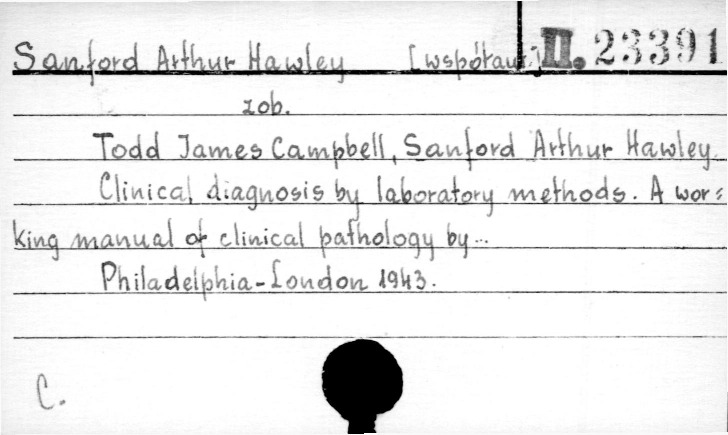 Sanford Arthur Hawley [współaut.] II. 23391
zob.
Todd James Campbell, Sanford Arthur Hawley.
Clinical diagnosis by laboratory methods. A wor=
king manual of clinical pathology by...
Philadelphia-London 1943.
C.